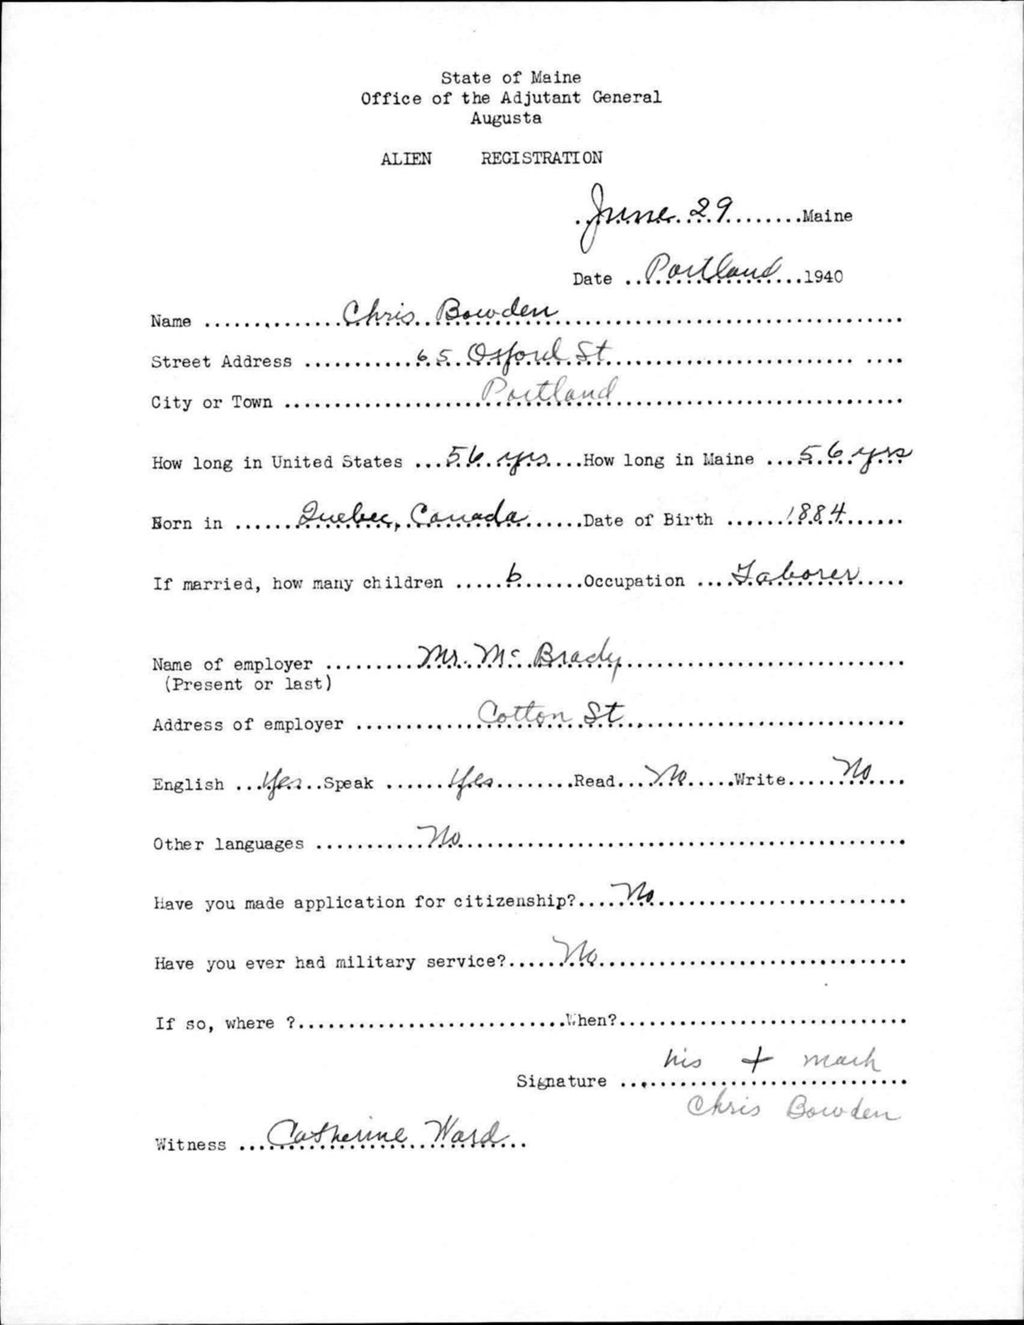 State of Maine
Office of the Adjutant General
Augusta
ALIEN REGISTRATION
June 29 Maine
Date Portland 1940
Name Chris Bowden
Street Address 65 Oxford St
City or Town Portland
How long in United States 56 yrs How long in Maine 56 yrs
Born in Quebec, Canada Date of Birth 1884
If married, how many children 6 Occupation Laborer
Name of employer Mr. Mc Brady
(Present or last)
Address of employer Cotton St
English Yes Speak Yes Read No Write No
Other languages No
Have you made application for citizenship? No
Have you ever had military service? No
If so, where ? When?
his + mark
Signature
Chris Bowden
Witness Catherine Ward